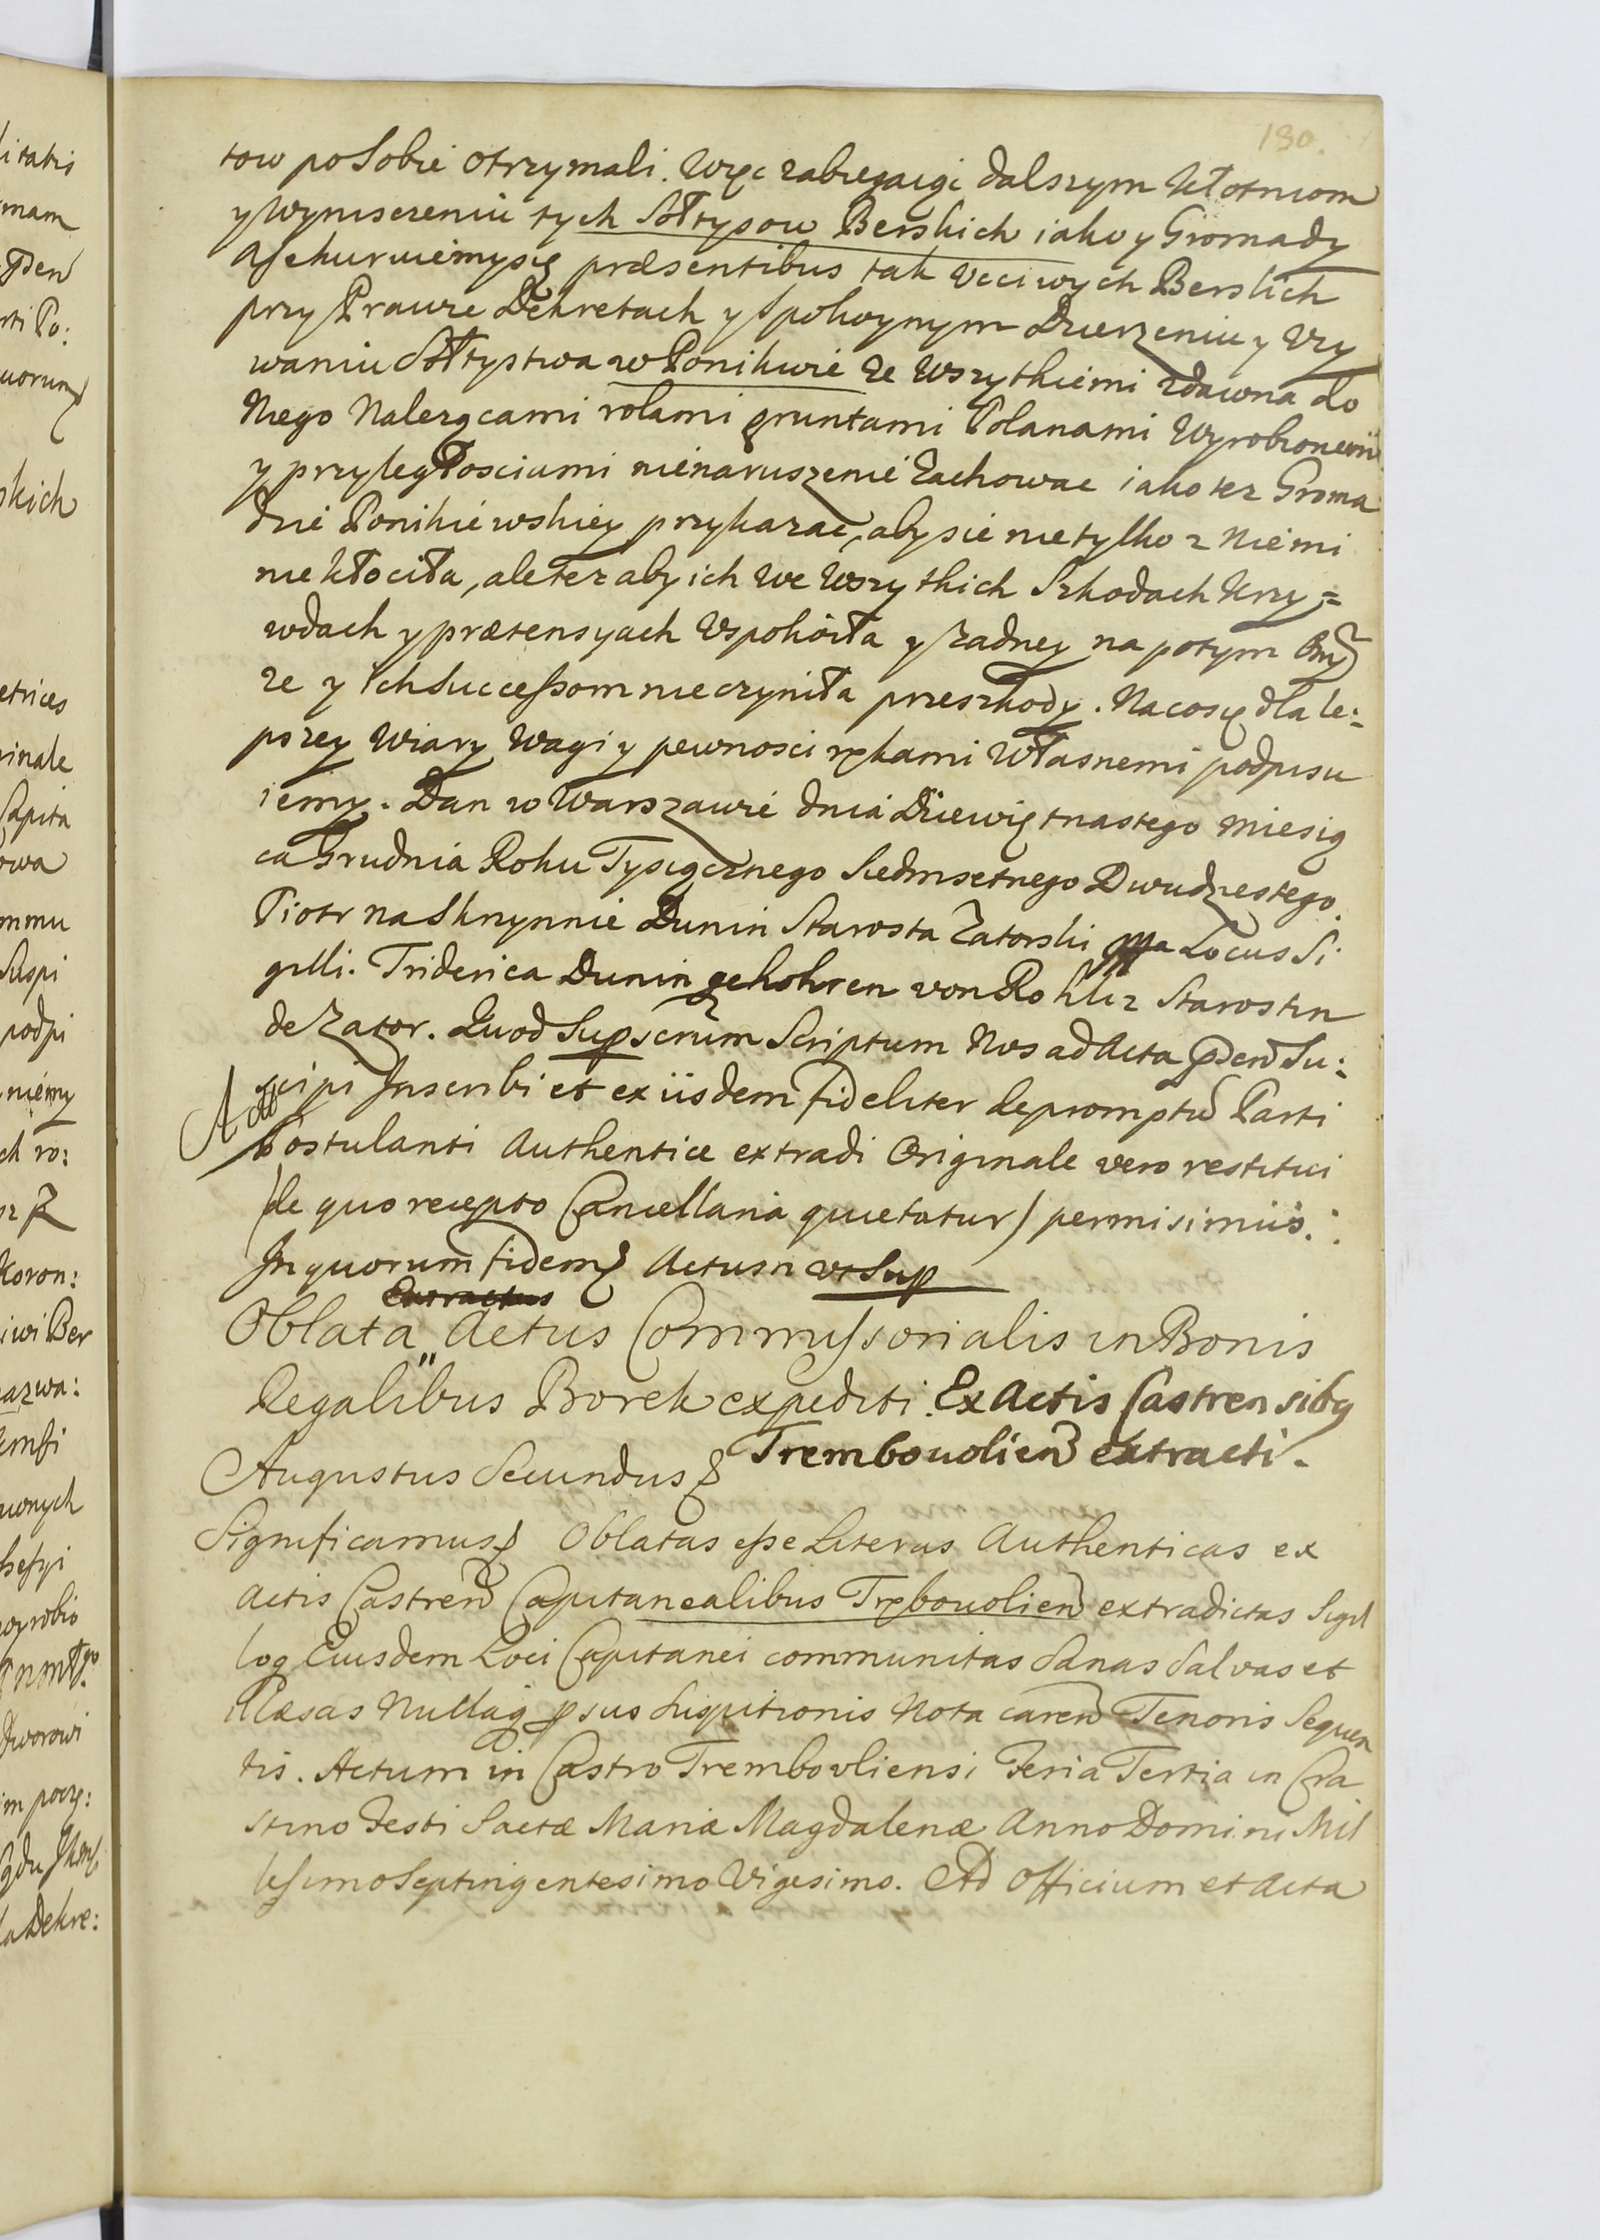 190.
tow po Sobie otrzymali. Więc zabiegaiąc dalszym Kłotniom
y wyniszczeniu tych Sołtysow Berskich iako y Gromady
assekuruiemy się præsentibus tak Uczciwych Berskich
przy Prawie Dekretach y spokoynym Dzierzeniu y Uzy
waniu Sołtystwa w Ponikwie ze wszytkiemi zdawna do
Niego Nalezącami rolami gruntami Polanami Wyrobionemi
y przyległosciami nienaruszenie Zachowac iako tez Groma
dzie Ponikiewskiey przykazac, aby sie nie tylko z Niemi
nie kłociła, ale tez aby ich we wszytkich Szkodach Krzy=
wdach y prætensyach Wspokoiła y zadney na potym Onym
ze y Ich Successom nie czyniła przeszkody. Na co się dla le:
pszey Wiary Wagi y pewnosci rękami Własnemi podpisu
iemy. Dan w Warszawie dnia Dziewiętnastego Miesią
ca Grudnia Roku Tysiącznego Siedmsetnego Dwudziestego.
Piotr na Skrzynnie Dunin Starosta Zatorski mpa Locus Si
gilli. Friderica Dunin gebohren von Rohliz Starostin
de Zator. Quod Supscrum Scriptum Nos ad Acta pden Su:
scipi Inscribi et ex iisdem fideliter depromptu Parti
Postulanti Authentice extradi Originale vero restitui
(de quo recepto Cancellaria quietatur) permisimus.
In quorum fidem Actum ut Sup
Extractus
Oblata Actus Commissorialis in Bonis
Regalibus Borek expediti. Ex Actis Castrensibq
Trembouolien extracti.
Augustus Secundus
Significamus Oblatas esse Literas Authenticas ex
Actis Castren Capitanealibus Trębouolien extradictas Sigil
loq Eiusdem Loci Capitanei communitas Sanas Salvas et
illæsas Nullaq psus Suspitionis Nota caren Tenoris Sequen
tis. Actum in Castro Trembovliensi Feria Tertia in Cra
stino Festi Sactæ Mariæ Magdalenæ Anno Domini Mil
lesimo Septingentesimo Vigesimo. Ad Officium et Acta